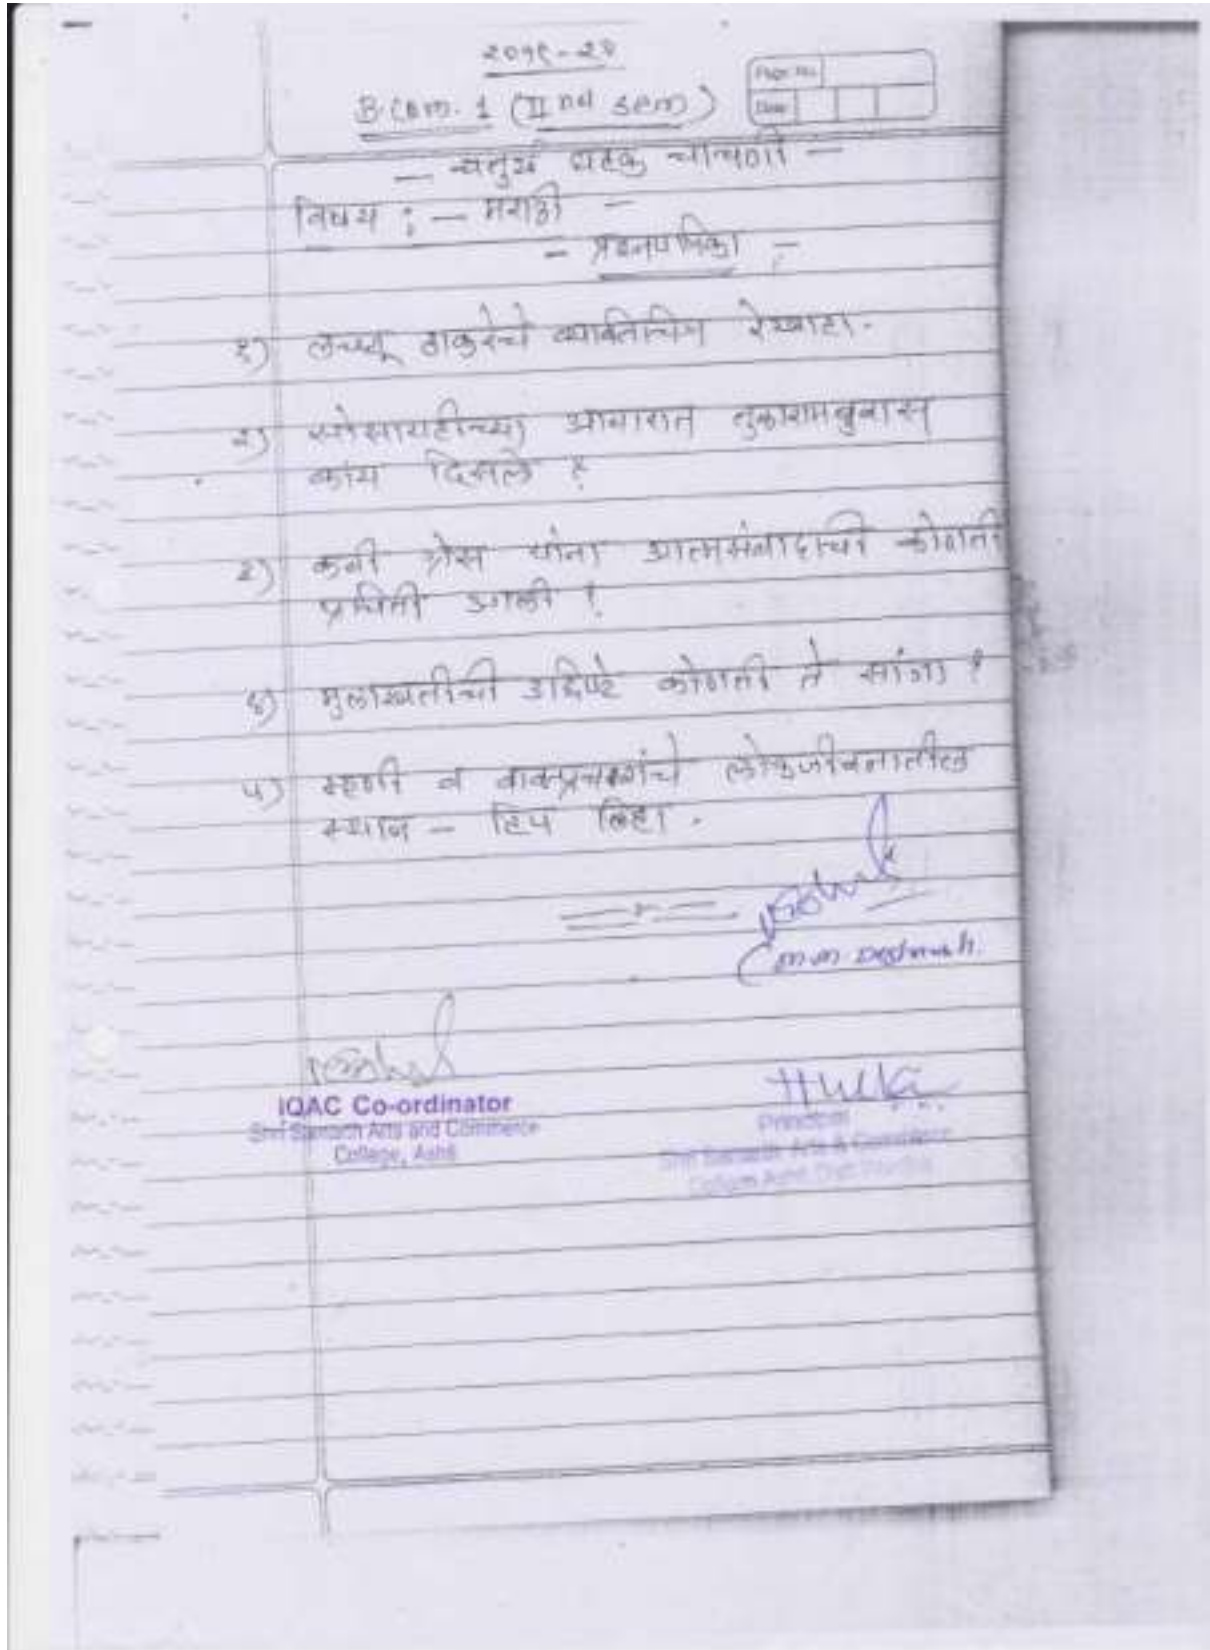 २०१९ - २०
B.Com. 1 (II nd sem)
Page No.
Date
— चतुर्थ घटक चाचणी —
विषय : — मराठी —
— प्रश्नपत्रिका —
१) लच्छू ठाकुरेचे व्यक्तिचित्र रेखाटा.
२) सोसायटीच्या आवारात तुकारामबुवास
काय दिसले ?
३) कवी ग्रेस यांना आत्मसंवादाची कोणती
प्रचिती आली ?
४) मुलाखतीची उद्दिष्टे कोणती ते सांगा ?
५) म्हणी व वाक्प्रचारांचे लोकजीवनातील
स्थान — टिप लिहा.
(m.m Deshmukh.
IQAC Co-ordinator
Shri Samarth Arts and Commerce
College, Ashti
Principal
Shri Samarth Arts & Commerce
College Ashti